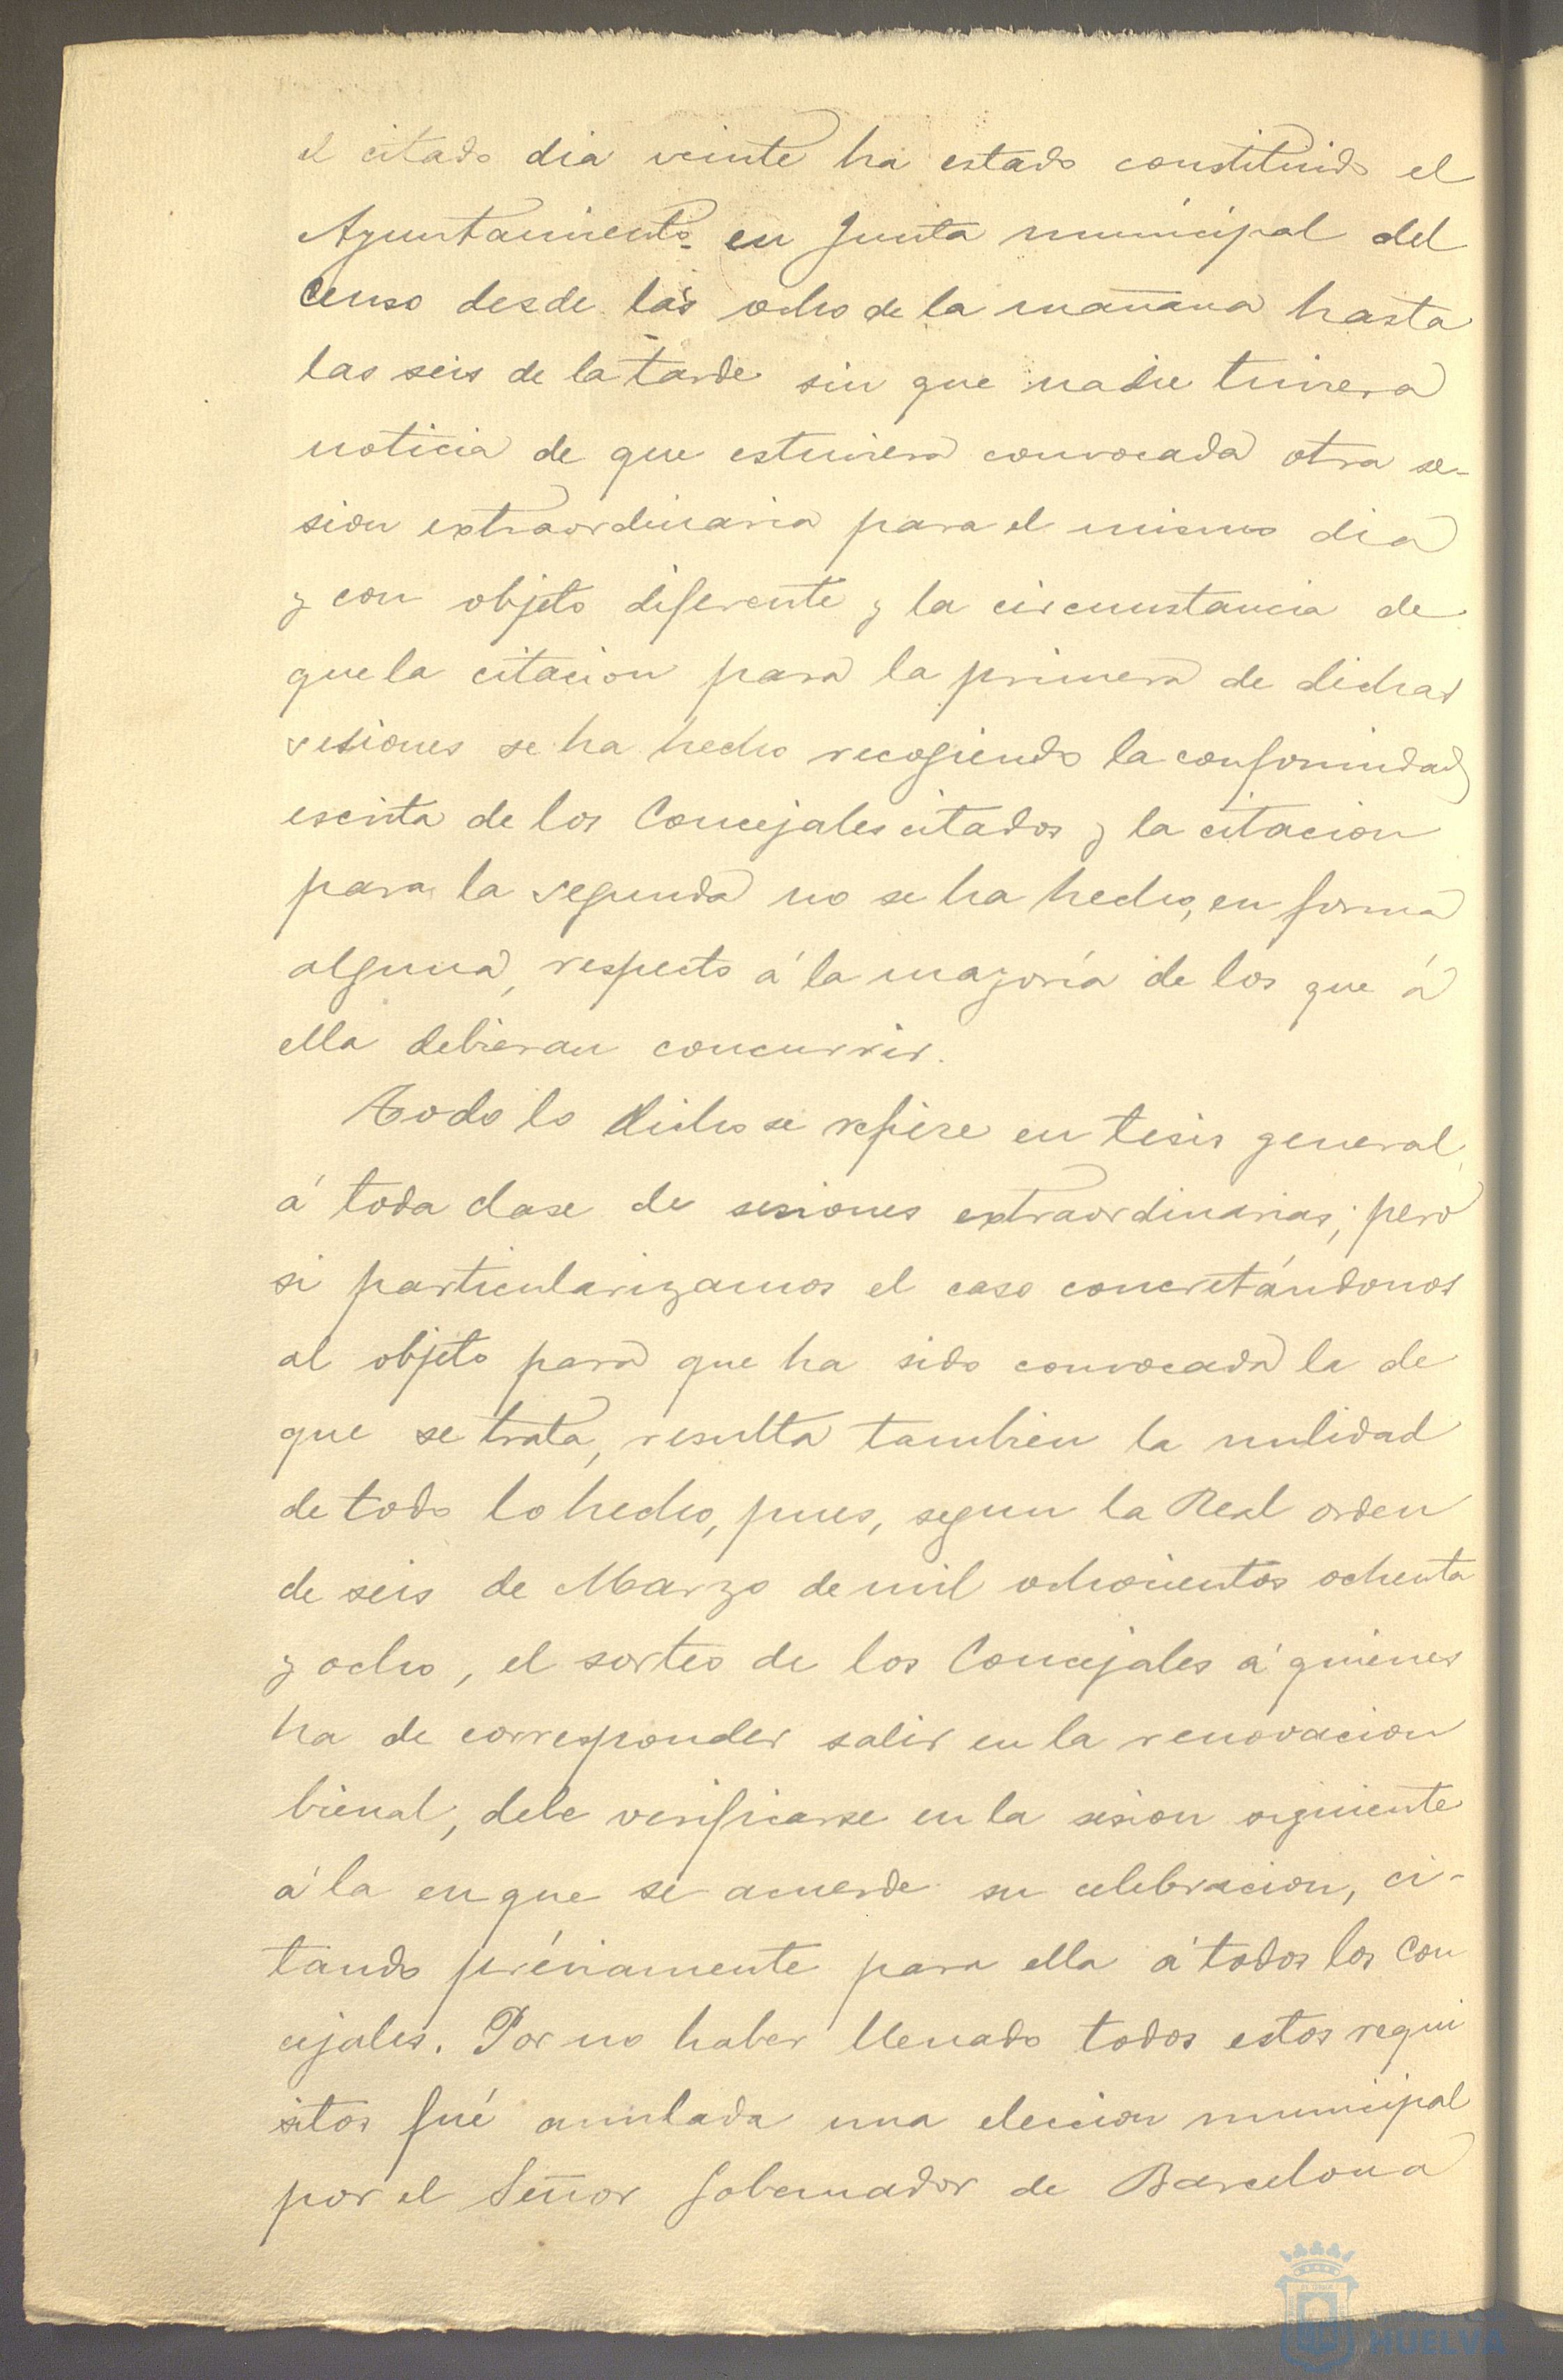 el citado dia veinte ha estado constituido el
Ayuntamiento en Junta municipal del
Censo desde las ocho de la mañana hasta
las seis de la tarde sin que nadie tuviera
noticia de que estuviera convocada otra se-
sion extraordinaria para el mismo dia
y con objeto diferente y la circunstancia de
que la citacion para la primera de dichas
sesiones se ha hecho recogiendo la conformidad
escrita de los Concejales citados y la citacion
para la segunda no se ha hecho, en forma
alguna, respecto á la mayoría de los que á
ella debieran concurrir.
Todo lo dicho se refiere en tesis general,
á toda clase de sesiones extraordinarias; pero
si particularizamos el caso concretándonos
al objeto para que ha sido convocada la de
que se trata, resulta tambien la nulidad
de todo lo hecho, pues, segun la Real orden
de seis de Marzo de mil ochocientos ochenta
y ocho, el sorteo de los Concejales á quienes
ha de corresponder salir en la renovacion
bienal, debe verificarse en la sesion siguiente
á la en que se acuerde su celebracion, ci-
tando préviamente para ella á todos los Con
cejales. Por no haber llenado todos estos requi
sitos fué anulada una eleccion municipal
por el Señor Gobernador de Barcelona
HUELVA